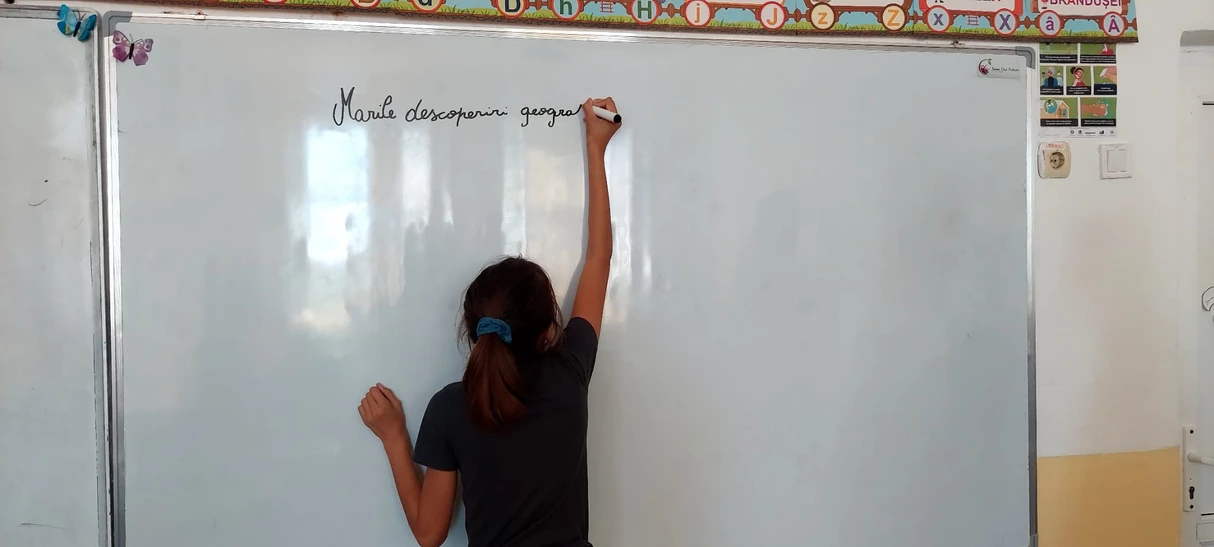 D h H i j J z Z x X â Â
BRÂNDUȘEI
Marile descoperiri geogra